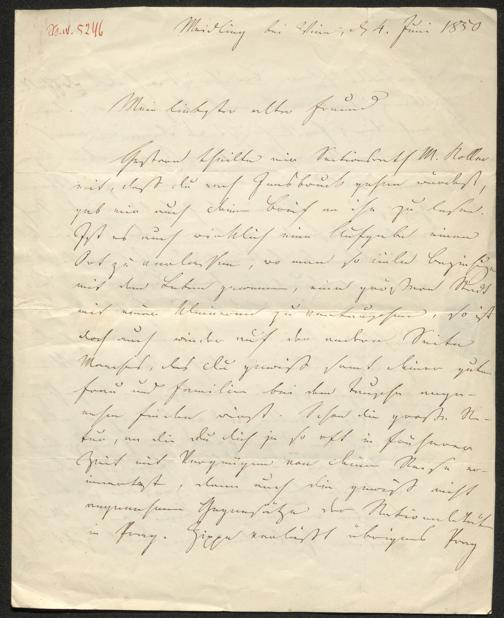 N. 5246
Meidling bei Wien, d 4. Juni 1850
Mein liebster alter Freund
Gestern theilte mir Sectionsrath M. Koller
mit, daß du nach Innsbruck gehen würdest,
gab mir auch deinen Brief an ihn zu lesen.
Ist es auch wirklich eine Aufgabe einen
Ort zu verlassen, wo man so viele Beziehungen
mit dem Leben gewonnen, eine größere Stadt
mit einer kleineren zu vertauschen, so ist
doch auch wieder auf der andern Seite
Manches, das du gewiß samt deiner guten
Frau und Familie bei dem Tausche ange-
nehm finden wirst. Schon die große Na-
tur, an die du dich ja so oft in früherer
Zeit mit Vergnügen von deiner Reise er-
innertest, dann auch die gewiß nicht
angenehmen Gegensätze der Nationalitäten
in Prag. Zippe verläßt übrigens Prag